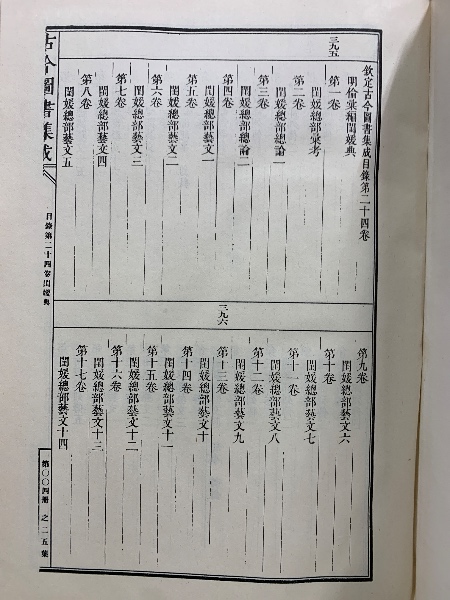 三九五
欽定古今圖書集成目錄第二十四卷
明倫彙編閨媛典
第一卷
閨媛總部彙考
第二卷
閨媛總部總論一
第三卷
閨媛總部總論二
第四卷
閨媛總部藝文一
第五卷
閨媛總部藝文二
第六卷
閨媛總部藝文三
第七卷
閨媛總部藝文四
第八卷
閨媛總部藝文五
三九六
第九卷
閨媛總部藝文六
第十卷
閨媛總部藝文七
第十一卷
閨媛總部藝文八
第十二卷
閨媛總部藝文九
第十三卷
閨媛總部藝文十
第十四卷
閨媛總部藝文十一
第十五卷
閨媛總部藝文十二
第十六卷
閨媛總部藝文十三
第十七卷
閨媛總部藝文十四
古今圖書集成
目錄第二十四卷閨媛典
第〇〇四冊
之二五葉